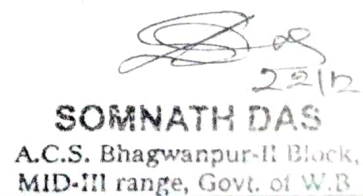 22/12
SOMNATH DAS
A.C.S. Bhagwanpur-II Block,
MID-III range, Govt. of W.B.